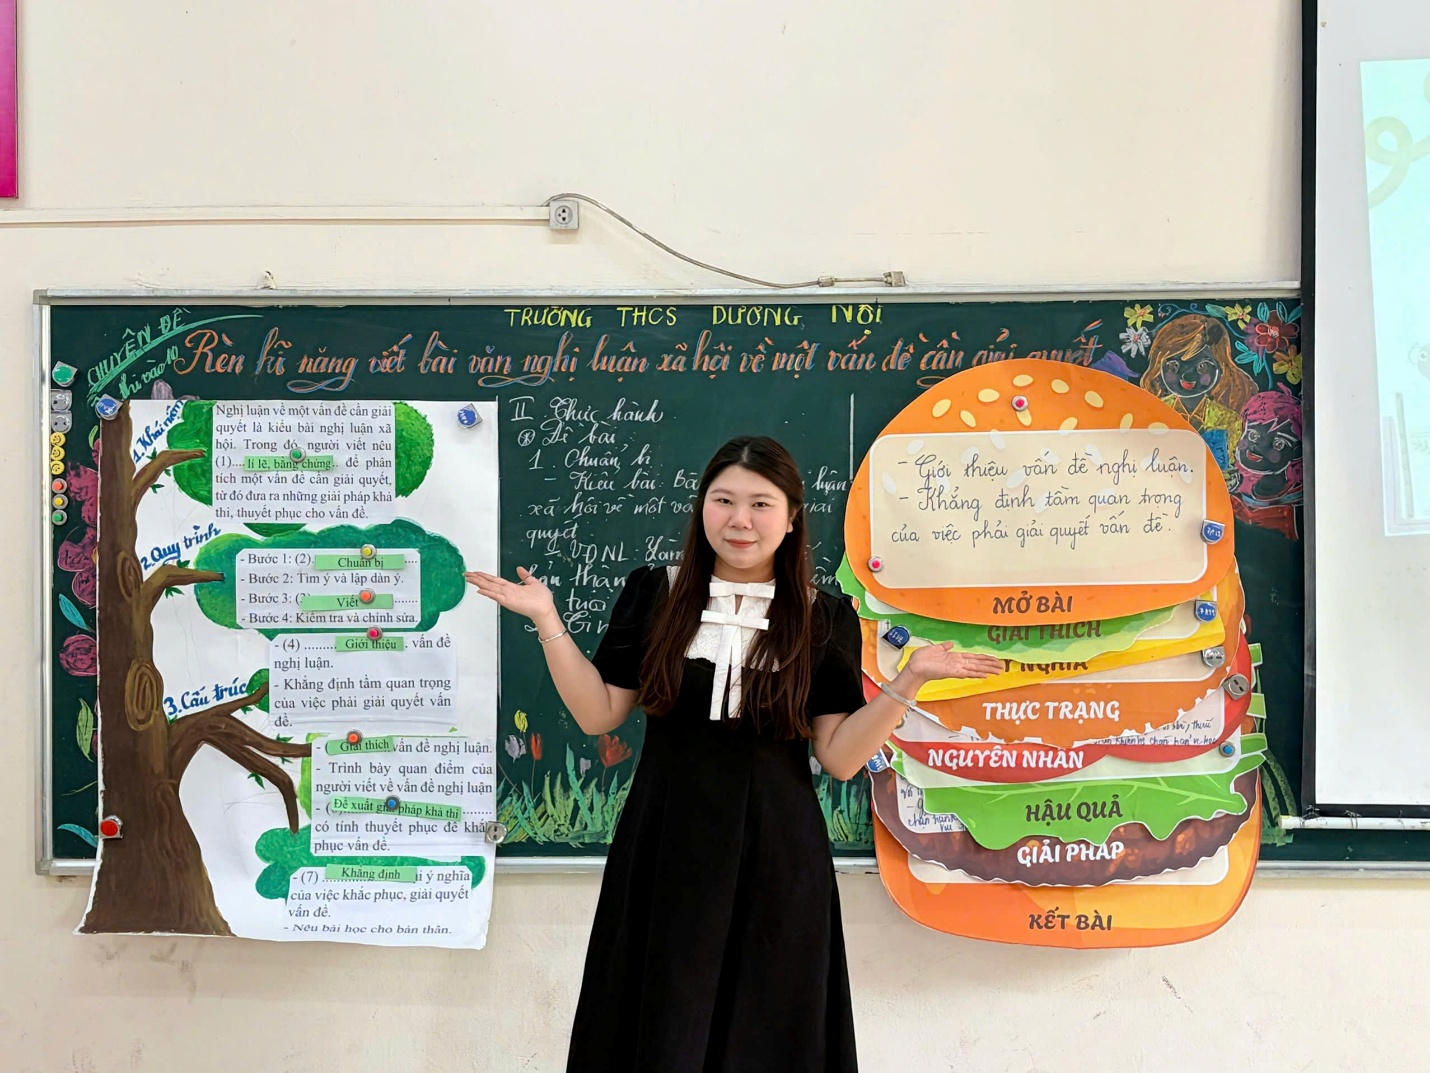 TRƯỜNG THCS DƯƠNG NỘI
CHUYÊN ĐỀ
thi vào 10
Rèn kĩ năng viết bài văn nghị luận xã hội về một vấn đề cần giải quyết
1. Khái niệm
Nghị luận về một vấn đề cần giải
quyết là kiểu bài nghị luận xã
hội. Trong đó, người viết nêu
(1).... lí lẽ, bằng chứng.. để phân
tích một vấn đề cần giải quyết,
từ đó đưa ra những giải pháp khả
thi, thuyết phục cho vấn đề.
2. Quy trình
- Bước 1: (2). Chuẩn bị ....
- Bước 2: Tìm ý và lập dàn ý.
- Bước 3: (3) Viết ........
- Bước 4: Kiểm tra và chỉnh sửa.
3. Cấu trúc
- (4) ......... Giới thiệu . vấn đề
nghị luận.
- Khẳng định tầm quan trọng
của việc phải giải quyết vấn
đề.
Giải thích vấn đề nghị luận.
- Trình bày quan điểm của
người viết về vấn đề nghị luận
- Đề xuất giải pháp khả thi ........
có tính thuyết phục để khắc
phục vấn đề.
- (7) ........... Khẳng định ý nghĩa
của việc khắc phục, giải quyết
vấn đề.
- Nêu bài học cho bản thân.
II. Thực hành
Đề bài
1. Chuẩn bị
- Kiểu bài: luận
xã hội về một giải
quyết
- VĐNL:
- Giới thiệu vấn đề nghị luận.
- Khẳng định tầm quan trọng
của việc phải giải quyết vấn đề.
MỞ BÀI
GIẢI THÍCH
Ý NGHĨA
THỰC TRẠNG
NGUYÊN NHÂN
HẬU QUẢ
GIẢI PHÁP
KẾT BÀI